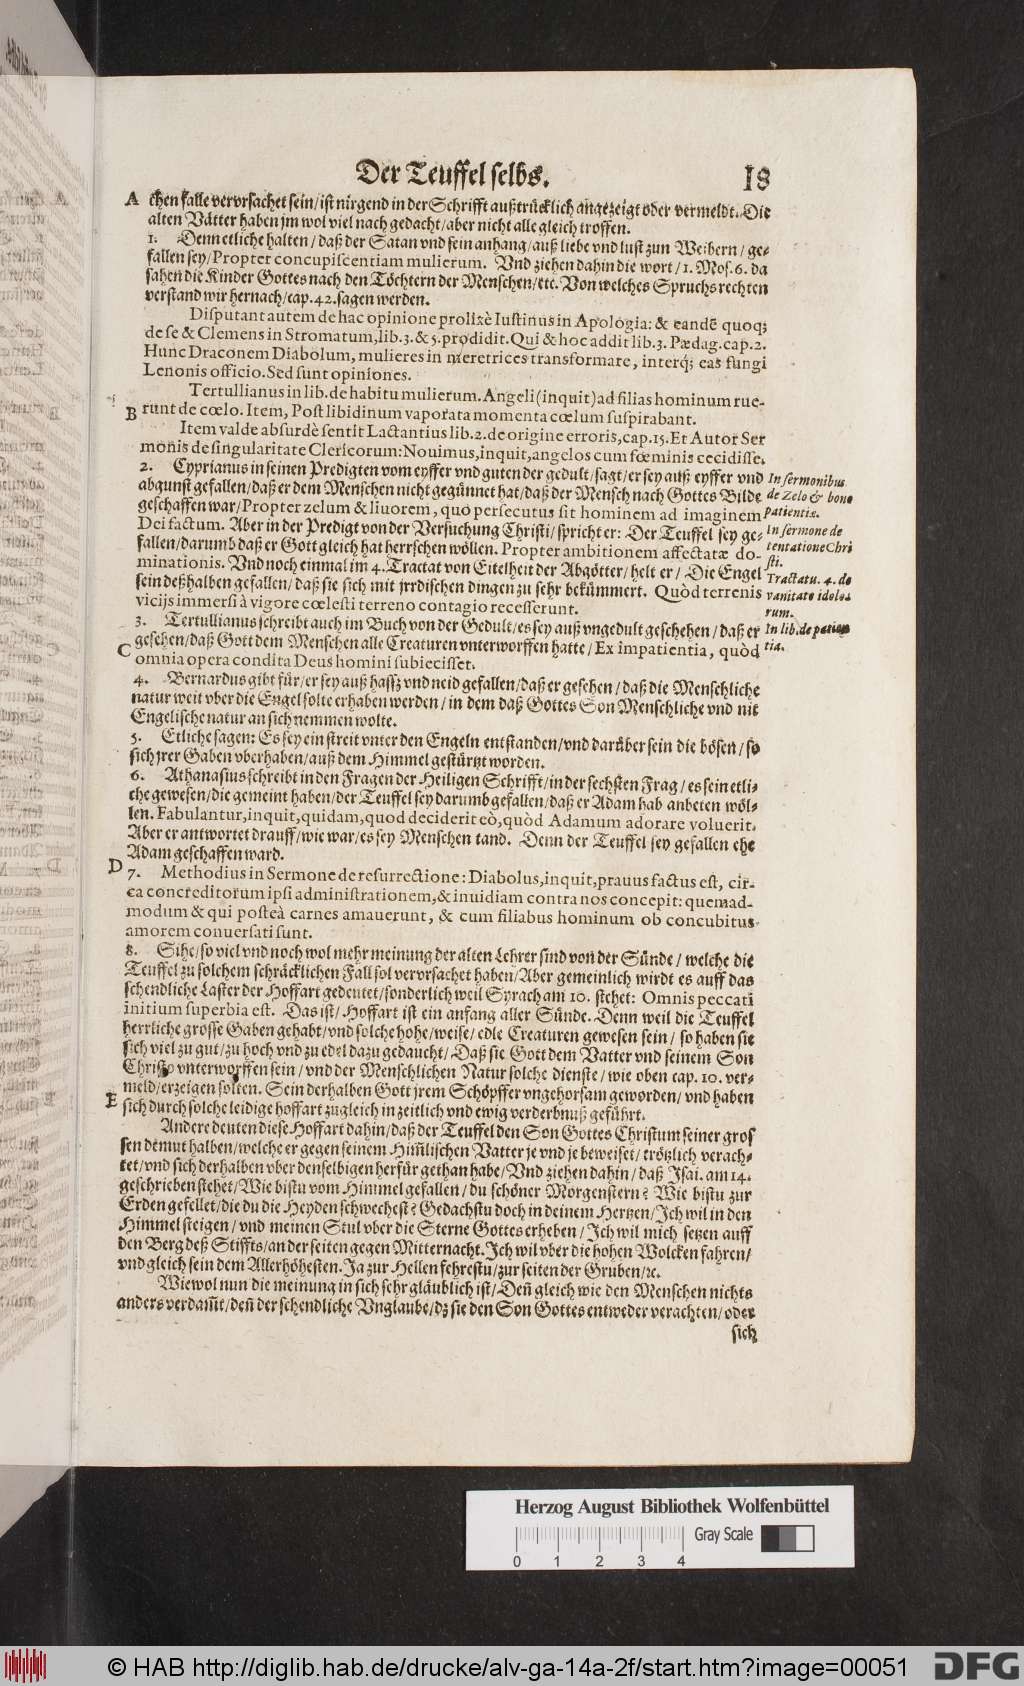 Der Teuffel selbs. 18
A chen falle vervrsachet sein/ist nirgend in der Schrifft außtrücklich angezeigt oder vermeldt. Die
alten Vätter haben jm wol viel nach gedacht/aber nicht alle gleich troffen.
1. Denn etliche halten/daß der Satan vnd sein anhang/auß liebe vnd lust zun Weibern/ge-
fallen sey/Propter concupiscentiam mulierum. Vnd ziehen dahin die wort/1. Mos. 6. da
sahen die Kinder Gottes nach den Töchtern der Menschen/etc. Von welches Spruchs rechten
verstand wir hernach/cap. 42. sagen werden.
Disputant autem de hac opinione prolixè Iustinus in Apologia: & eandē quoq;
de se & Clemens in Stromatum, lib. 3. & 5. prodidit. Qui & hoc addit lib. 3. Pædag. cap. 2.
Hunc Draconem Diabolum, mulieres in meretrices transformare, interq; eas fungi
Lenonis officio. Sed sunt opiniones.
Tertullianus in lib. de habitu mulierum. Angeli (inquit) ad filias hominum rue-
B runt de cœlo. Item, Post libidinum vaporata momenta cœlum suspirabant.
Item valde absurdè sentit Lactantius lib. 2. de origine erroris, cap. 15. Et Autor Ser
monis de singularitate Clericorum: Nouimus, inquit, angelos cum fœminis cecidisse.
2. Cyprianus in seinen Predigten vom eyffer vnd guten der gedult/sagt/er sey auß eyffer vnd
abgunst gefallen/daß er dem Menschen nicht gegünnet hat/daß der Mensch nach Gottes Bilde
geschaffen war/Propter zelum & liuorem, quo persecutus sit hominem ad imaginem
Dei factum. Aber in der Predigt von der Versuchung Christi/spricht er: Der Teuffel sey ge-
fallen/darumb daß er Gott gleich hat herrschen wöllen. Propter ambitionem affectatæ do-
minationis. Vnd noch einmal im 4. Tractat von Eitelheit der Abgötter/helt er/Die Engel
sein deßhalben gefallen/daß sie sich mit jrrdischen dingen zu sehr bekümmert. Quòd terrenis
vicijs immersi à vigore cœlesti terreno contagio recesserunt.
In sermonibus
de Zelo & bono
patientiæ.
In sermone de
tentatione Chri
sti.
Tractatu. 4. de
vanitate idolo-
rum.
3. Tertullianus schreibt auch im Buch von der Gedult/es sey auß vngedult geschehen/daß er
In lib. de patien
C gesehen/daß Gott dem Menschen alle Creaturen vnterworffen hatte/Ex impatientia, quòd
tia.
omnia opera condita Deus homini subiecisset.
4. Bernardus gibt für/er sey auß hassz vnd neid gefallen/daß er gesehen/daß die Menschliche
natur weit vber die Engel solte erhaben werden/in dem daß Gottes Son Menschliche vnd nit
Engelische natur an sich nemmen wolte.
5. Etliche sagen: Es sey ein streit vnter den Engeln entstanden/vnd darüber sein die bösen/so
sich jrer Gaben vberhaben/auß dem Himmel gestürtzt worden.
6. Athanasius schreibt in den Fragen der Heiligen Schrifft/in der sechsten Frag/es sein etli-
che gewesen/die gemeint haben/der Teuffel sey darumb gefallen/daß er Adam hab anbeten wöl-
len. Fabulantur, inquit, quidam, quod deciderit eò, quòd Adamum adorare voluerit.
Aber er antwortet drauff/wie war/es sey Menschen tand. Denn der Teuffel sey gefallen ehe
Adam geschaffen ward.
D 7. Methodius in Sermone de resurrectione: Diabolus, inquit, prauus factus est, cir-
ca concreditorum ipsi administrationem, & inuidiam contra nos concepit: quemad-
modum & qui posteà carnes amauerunt, & cum filiabus hominum ob concubitus
amorem conuersati sunt.
8. Sihe/so viel vnd noch wol mehr meinung der alten Lehrer sind von der Sünde/welche die
Teuffel zu solchem schräcklichen Fall sol vervrsachet haben/Aber gemeinlich wirdt es auff das
schendliche Laster der Hoffart gedeutet/sonderlich weil Syrach am 10. stehet: Omnis peccati
initium superbia est. Das ist/Hoffart ist ein anfang aller Sünde. Denn weil die Teuffel
herrliche grosse Gaben gehabt/vnd solche hohe/weise/edle Creaturen gewesen sein/so haben sie
sich viel zu gut/zu hoch vnd zu edel dazu gedaucht/Daß sie Gott dem Vatter vnd seinem Son
Christo vnterworffen sein/vnd der Menschlichen Natur solche dienste/wie oben cap. 10. ver-
meld/erzeigen solten. Sein derhalben Gott jrem Schöpffer vngehorsam geworden/vnd haben
E sich durch solche leidige hoffart zugleich in zeitlich vnd ewig verderbnuß geführt.
Andere deuten diese Hoffart dahin/daß der Teuffel den Son Gottes Christum seiner gros
sen demut halben/welche er gegen seinem Him̃lischen Vatter je vnd je beweiset/trötzlich verach-
tet/vnd sich derhalben vber denselbigen herfür gethan habe/Vnd ziehen dahin/daß Isai. am 14.
geschrieben stehet/Wie bistu vom Himmel gefallen/du schöner Morgenstern? Wie bistu zur
Erden gefellet/die du die Heyden schwechest? Gedachstu doch in deinem Hertzen/Ich wil in den
Himmel steigen/vnd meinen Stul vber die Sterne Gottes erheben/Ich wil mich setzen auff
den Berg deß Stiffts/an der seiten gegen Mitternacht. Ich wil vber die hohen Wolcken fahren/
vnd gleich sein dem Allerhöhesten. Ja zur Hellen fehrestu/zur seiten der Gruben/ꝛc.
Wiewol nun die meinung in sich sehr gläublich ist/Deñ gleich wie den Menschen nichts
anders verdam̃t/deñ der schendliche Vnglaube/dz sie den Son Gottes entweder verachten/oder
sich
Herzog August Bibliothek Wolfenbüttel
Gray Scale
0 1 2 3 4
© HAB http://diglib.hab.de/drucke/alv-ga-14a-2f/start.htm?image=00051 DFG